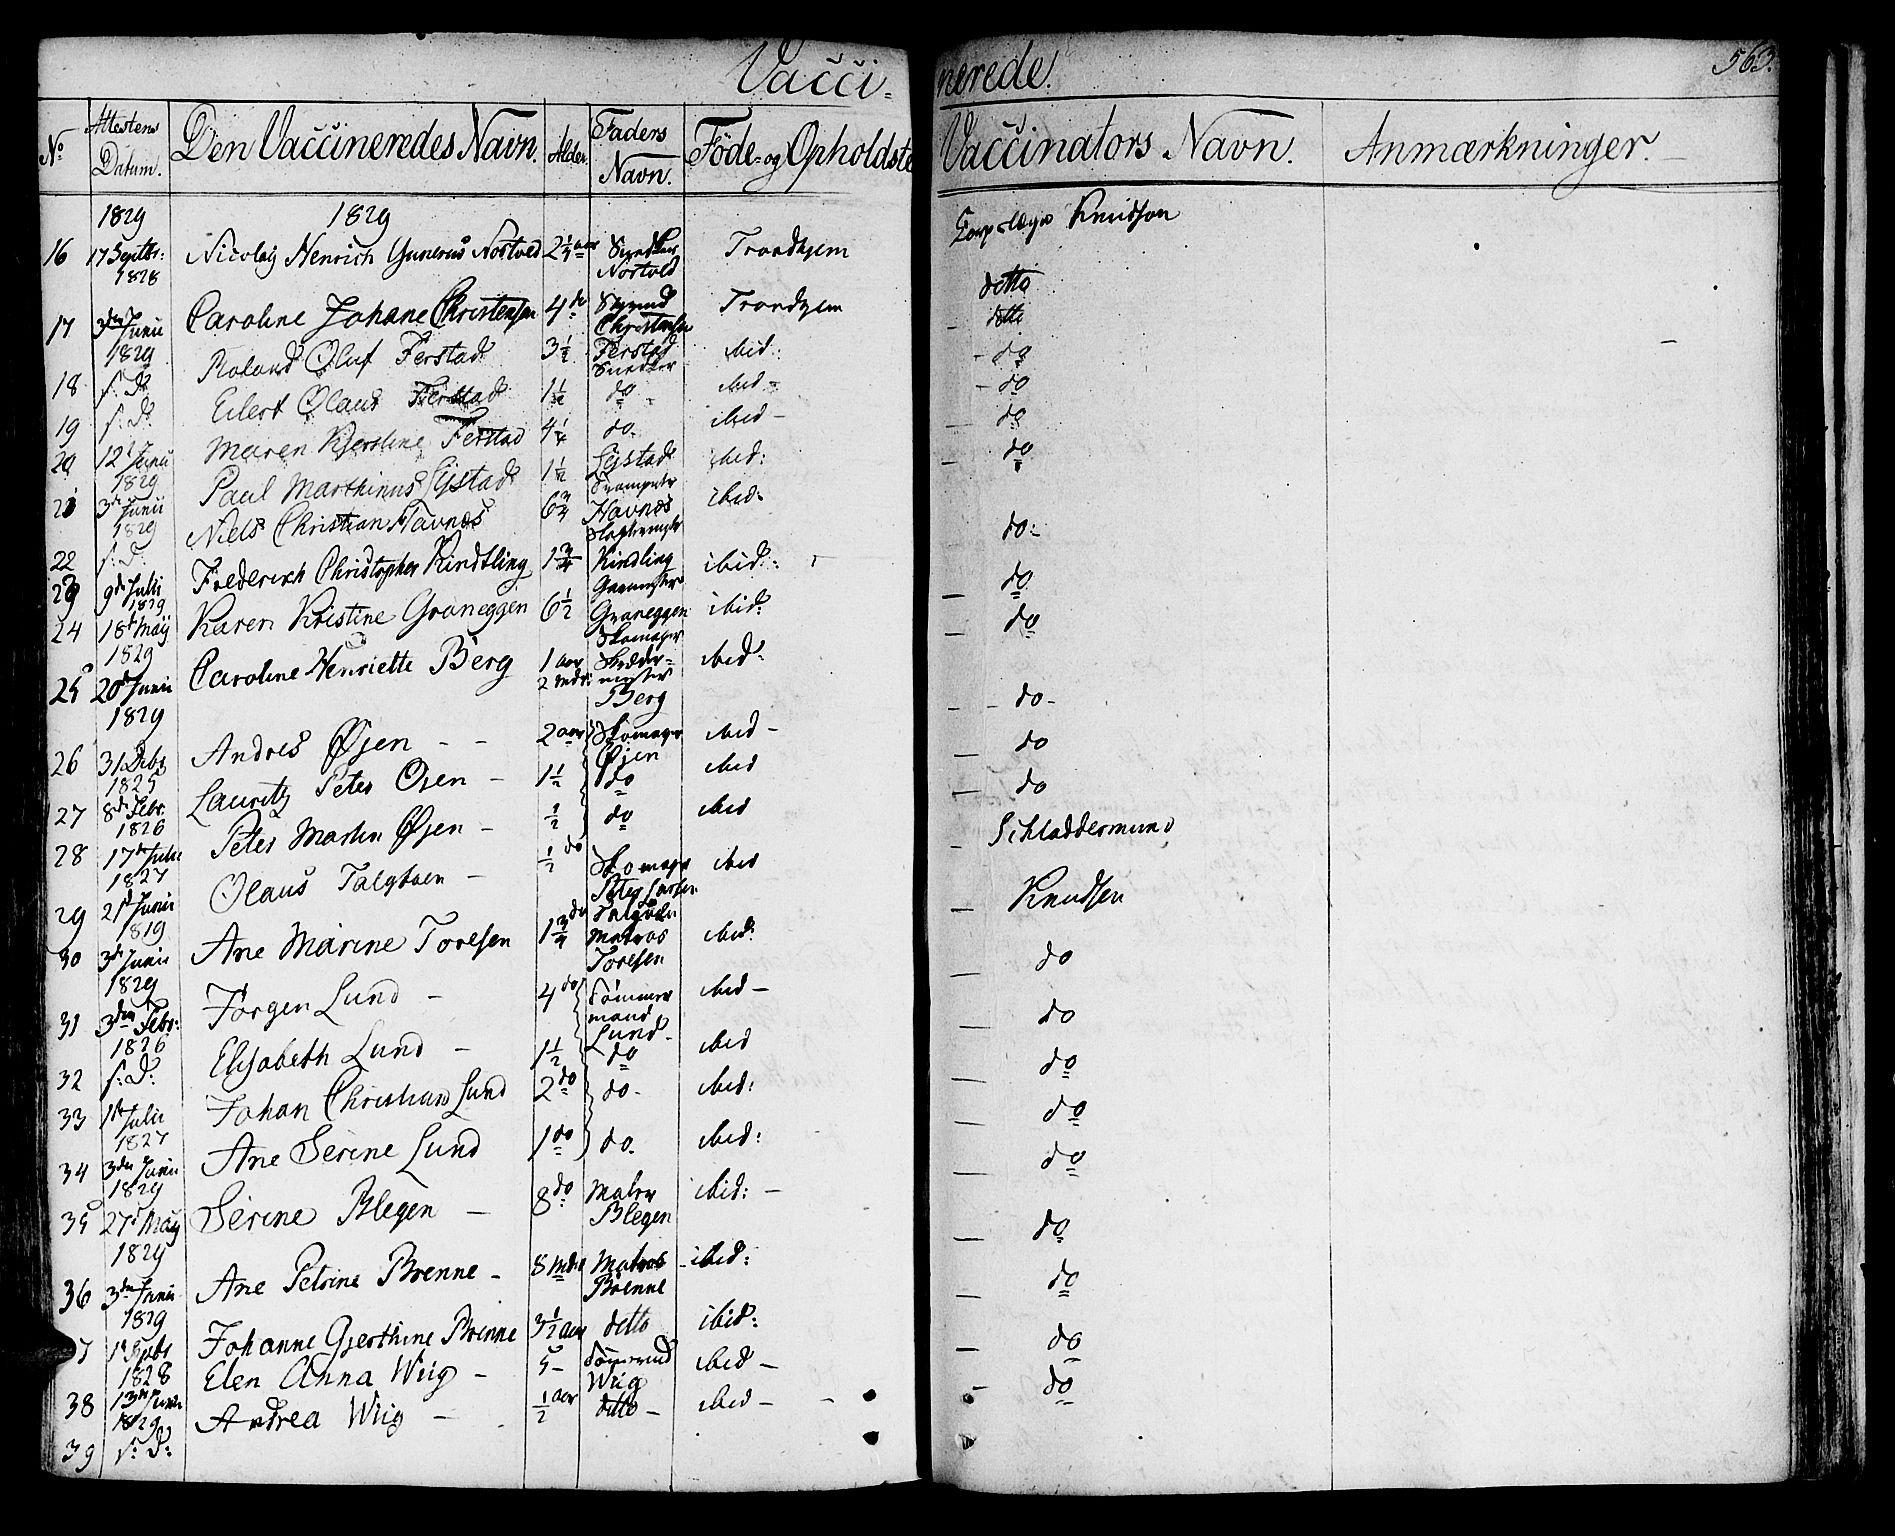 Vacci-
nerede.
563.
No
Attestens Datum.
Den Vaccineredes Navn.
Alder.
Faders Navn.
Föde- og Opholdste
Vaccinators Navn.
Anmærkninger.
1829 1829
16 17 Septbr: 1828 Nicolay Henrich Gunerus Nostved 2 1/4 aar Snedker Nostved Trondhjem Knudsen
17 3den Junii 1829 Caroline Johane Christensen 4 do Christensen Trondhjem detto
detto
18 s: d: Roland Oluf Ferstad 3 1/2 Ferstad Snedker ibid: do
19 s: d: Eilert Olaus Ferstad 1 1/2 do ibid - do
20 12t Junii 1829 Maren Kjerstine Ferstad 4 1/4 do ibid - do
21 3de Junii 1829 Paul Marthinus Systad 1 1/2 Systad ibid: do
22 s: d: Niels Christian Havnæs 6 3/4 Havnæs ibid: do-
23 9de Julii 1829 Frederich Christopher Kindtling 1 3/4 Kindling ibid: do
24 18de Maij 1829 Karen Kristine Graneggen 6 1/2 Graneggen Skomager ibid: do
25 20de Junii 1829 Caroline Henriette Berg 1 aar 2 mdr: Skrædermester Berg ibid: do-
26 31 Debr 1825 Andres Øjen - - 2 aar Skomager Øjen ibid - do
27 8de Febr. 1826 Lauritz Peter Ojen - 1 1/2 do ibid do
28 17de Julii 1827 Peter Martin Øjen - 1/2 do ibid Schladdermund
29 21d Junii 1819 Olaus Talgøen - 1/2 do Skomager Peter Larsen Talgøen ibid Knudsen
30 3de Junii 1829 Ane Marine Toresen 1 3/4 do Matros Toresen ibid: do
31 3den Febr: 1826 Jørgen Lund - 4 do Tømmermand Lund ibid - do
32 s: d: Elisabeth Lund - 1 1/2 do ibid do
33 1ste Julii 1827 Johan Christian Lund 2 do do- ibid: do
34 3den Junii 1829 Ane Serine Lund 1 do do. ibid: do
35 27d Maij 1829 Serine Blegen - 8 do Matros Blegen ibid: - do
36 3den Junii 1829 Ane Petrine Brenne - 8 mdr Matros Brenne ibid: do
7 1t Septbr 1828 Johanne Gjerthine Brenne 3 1/2 aar detto ibid: do
38 13de Junii 1829 Elen Anna Wiig - 5 - Wiig ibid - do
39 s: d: Andrea Wiig - 1/2 aar detto - ibid -